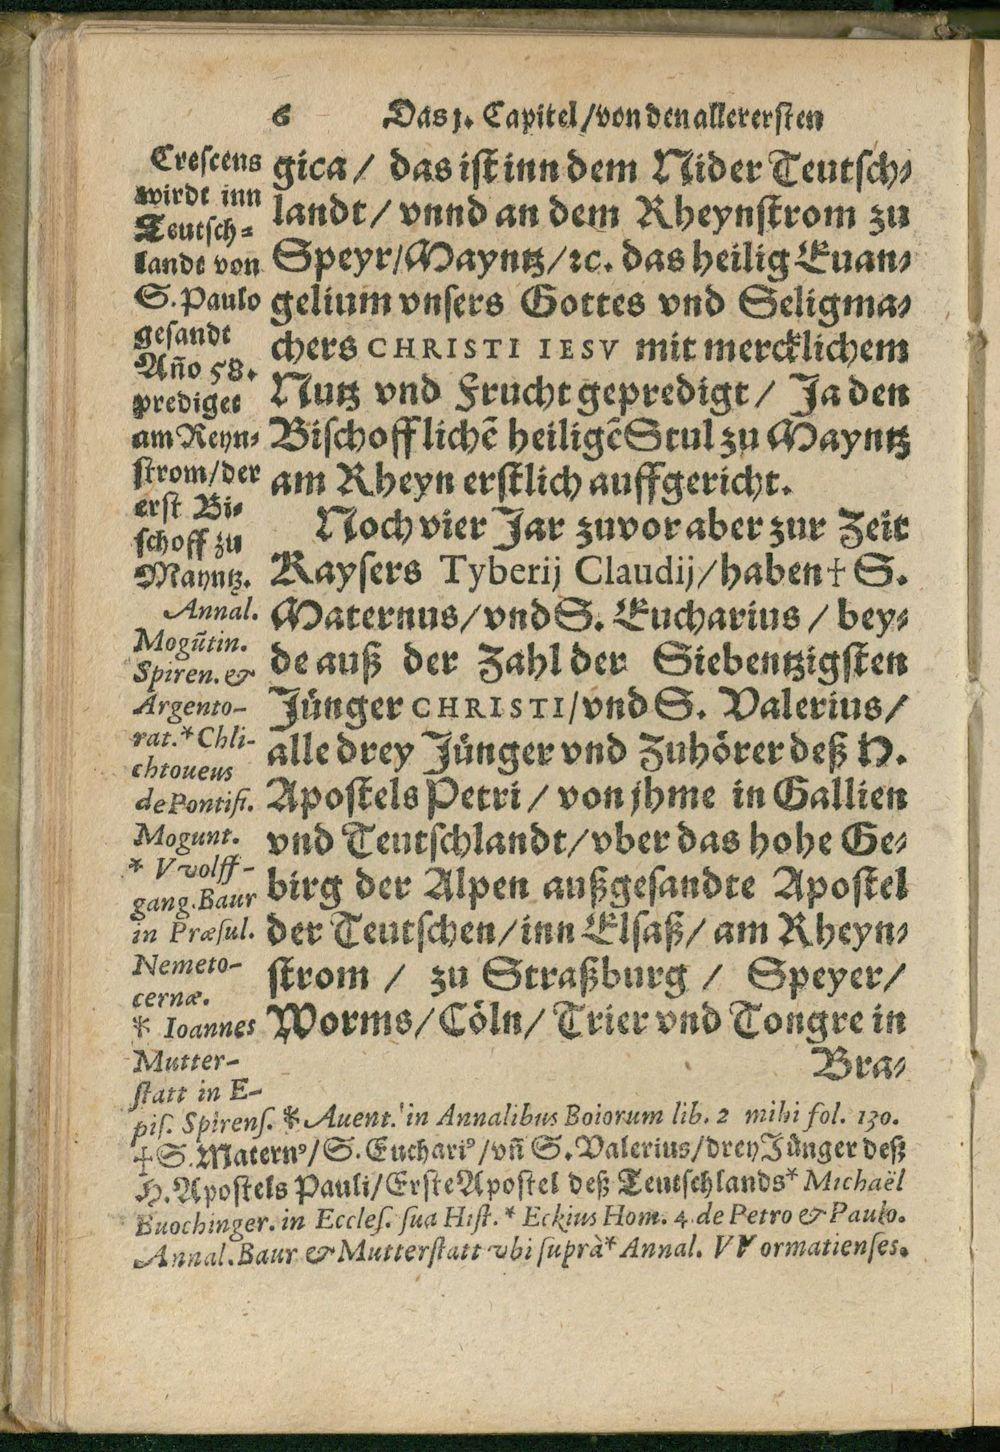 6 Das j. Capitel/von den allerersten
gica / das ist inn dem Nider Teutsch⸗
landt/ vnnd an dem Rheynstrom zu
Speyr/Mayntz/ꝛc. das heilig Euan⸗
gelium vnsers Gottes vnd Seligma⸗
chers CHRISTI IESV mit mercklichem
Nutz vnd Frucht gepredigt / Ja den
Bischofflichẽ heiligẽ Stul zu Mayntz
am Rheyn erstlich auffgericht.
Noch vier Jar zuvor aber zur Zeit
Kaysers Tyberij Claudij/haben † S.
Maternus/vnd S. Eucharius / bey⸗
de auß der Zahl der Siebentzigsten
Jünger CHRISTI/vnd S. Valerius/
alle drey Jünger vnd Zuhörer deß H.
Apostels Petri / von jhme in Gallien
vnd Teutschlandt/vber das hohe Ge⸗
birg der Alpen außgesandte Apostel
der Teutschen/inn Elsaß/ am Rheyn⸗
strom / zu Straßburg / Speyer/
Worms/Cöln/ Trier vnd Tongre in
Bra⸗
Crescens
wirdt inn
Teutsch⸗
landt von
S. Paulo
gesandt
Año 58.
prediget
am Reyn⸗
strom/der
erst Bi⸗
schoff zu
Mayntz.
Annal.
Mogũtin.
Spiren. &
Argento-
rat.* Chli-
chtoueus
de Pontifi.
Mogunt.
* Vvolff-
gang.Baur
in Præsul.
Nemeto-
cernæ.
* Ioannes
Mutter-
statt in E-
pis. Spirens. * Auent. in Annalibus Boiorum lib. 2 mihi fol. 130.
† S. Maternꝰ/S. Euchariꝰ/vñ S. Valerius/drey Jünger deß
H. Apostels Pauli/Erste Apostel deß Teutschlands* Michaël
Buochinger. in Eccles. sua Hist. * Eckius Hom. 4. de Petro & Paulo.
Annal. Baur & Mutterstatt vbi suprà* Annal. VVormatienses.